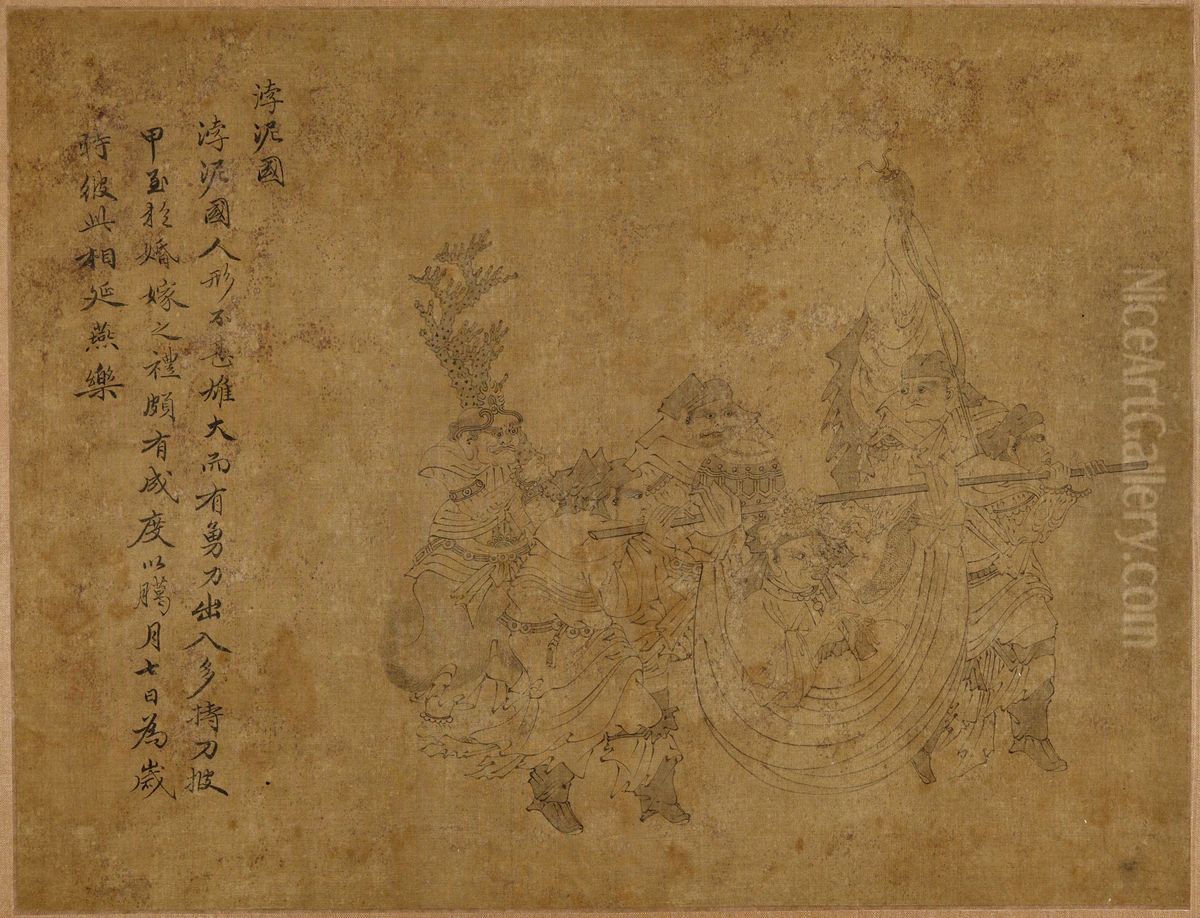 浡泥國
浡泥國人形不甚雄大而有勇力出入多持刀披
甲至於婚嫁之禮頗有成度以臈月七日為歲
時彼此相延燕樂
NiceArtGallery.com